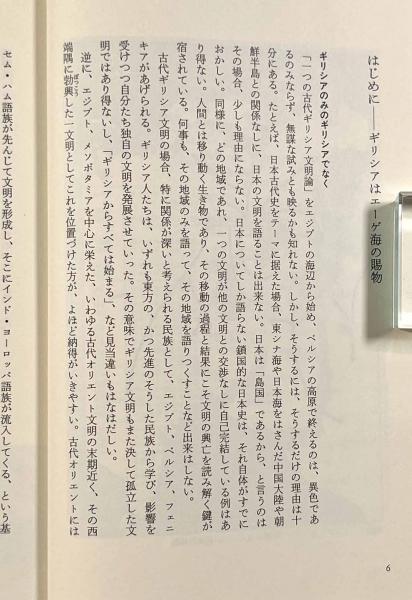 はじめに――ギリシアはエーゲ海の賜物
ギリシアのみのギリシアでなく
「一つの古代ギリシア文明論」をエジプトの海辺から始め、ペルシアの高原で終えるのは、異色であ
るのみならず、無謀な試みとも映るかも知れない。しかし、そうするには、そうするだけの理由は十
分にある。たとえば、日本古代史をテーマに据えた場合、東シナ海や日本海をはさんだ中国大陸や朝
鮮半島との関係なしに、日本の文明を語ることは出来ない。日本は「島国」であるから、と言うのは
その場合、少しも理由にならない。日本についてしか語らない鎖国的な日本史は、それ自体がすでに
おかしい。同様に、どの地域であれ、一つの文明が他の文明との交渉なしに自己完結している例はあ
り得ない。人間とは移り動く生き物であり、その移動の過程と結果にこそ文明の興亡を読み解く鍵が
宿されている。何事も、その地域のみを語って、その地域を語りつくすことなど出来はしない。
古代ギリシア文明の場合、特に関係が深いと考えられる民族として、エジプト、ペルシア、フェニ
キアがあげられる。ギリシア人たちは、いずれも東方の、かつ先進のそうした民族から学び、影響を
受けつつ自分たち独自の文明を発展させていった。その意味でギリシア文明もまた決して孤立した文
明ではあり得ないし、「ギリシアからすべては始まる」、など見当違いもはなはだしい。
逆に、エジプト、メソポタミアを中心に栄えた、いわゆる古代オリエント文明の末期近く、その西
端隅に勃興した一文明としてこれを位置づけた方が、よほど納得がいきやすい。古代オリエントには
セム・ハム語族が先んじて文明を形成し、そこにインド・ヨーロッパ語族が流入してくる、という基
6